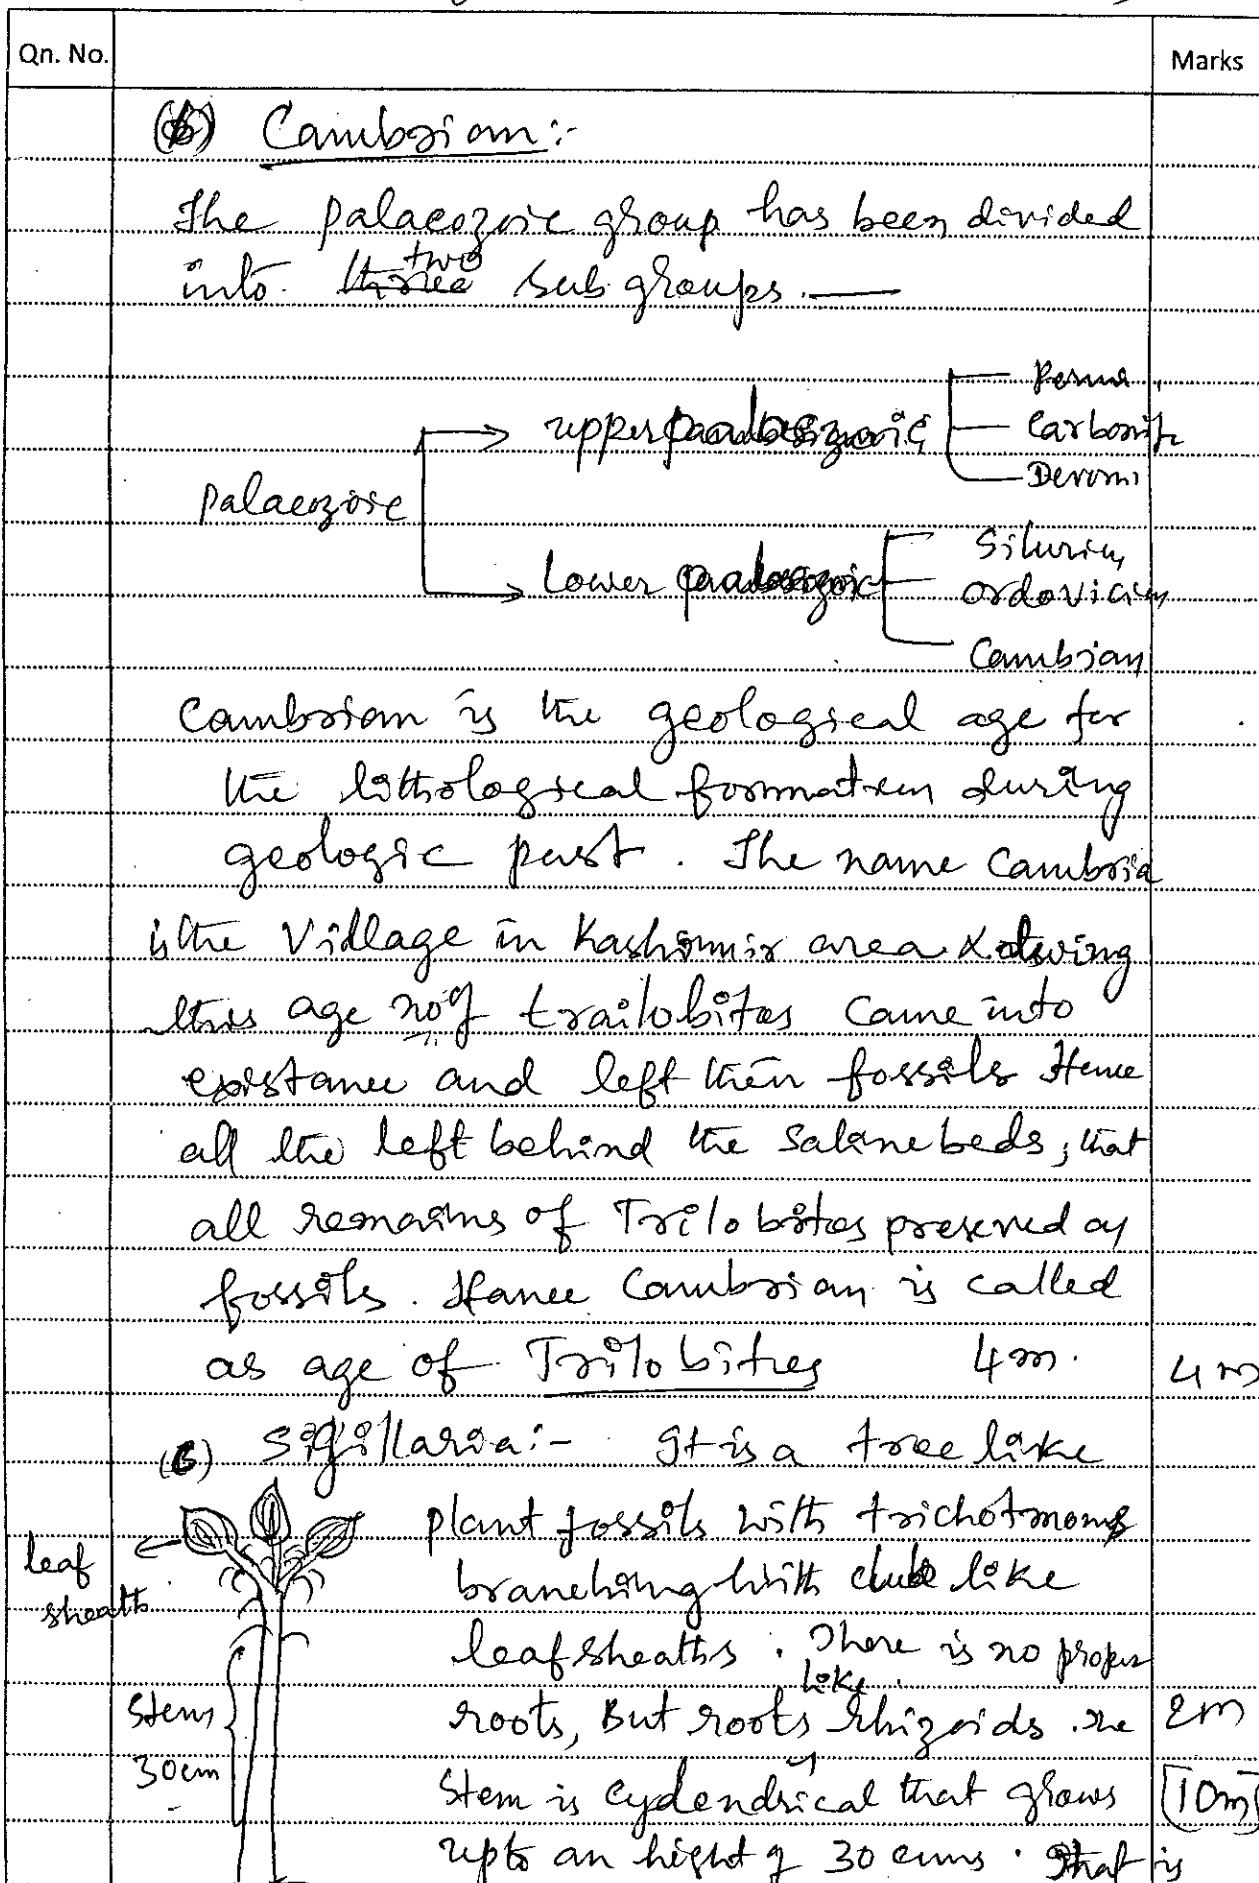 Qn. No.
Marks
(b) Cambrian:-
The palaeozoic group has been divided
into three two sub groups. —
Palaeozoic
upper palaeozoic
Permi
Carbonif
Devoni
Lower palaeozoic
Silurian
Ordovician
Cambrian
Cambrian is the geological age for
the lithological formation during
geologic past. The name Cambria
is the Vidlage in Kashimir area & during
this age no of trailobites came into
existance and left their fossils Hence
all the left behind the Saline beds, that
all remains of Trilobites preserved as
fossils. Hance Cambrian is called
as age of Trilobites 4m.
4m
(c) Sigillaria:- It is a tree like
plant fossils with trichotmoms
branching with club like
leaf sheaths. There is no proper
roots, But roots like rhizoids. The
2m
Stem is cydendrical that grows
[10m]
upto an hight of 30 cms. That is
leaf
sheath
Stem
30cm